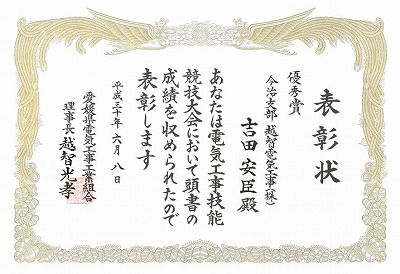 表彰状
優秀賞
今治支部 越智電気工事(株)
吉田安臣殿
あなたは電気工事技能
競技大会において頭書の
成績を収められたので
表彰します
平成三十年六月八日
愛媛県電気工事工業組合
理事長 越智光孝